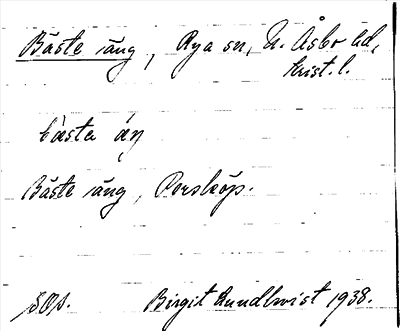 Bäste äng, Rya sn, N. Åsbo hd,
Krist. l.
bästa äŋ
Bäste äng, Perstorp.
SOp.
Birgit Lundkvist 1938.